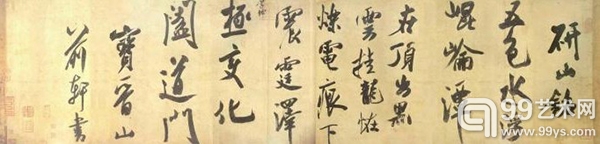 研山銘
五色水浮
崐崘潭
在頂出黑
雲挂龍怪
爍電痕下
震霆澤
極變化
闔道門
寶晉山
前軒書
99艺术网
www.99ys.com